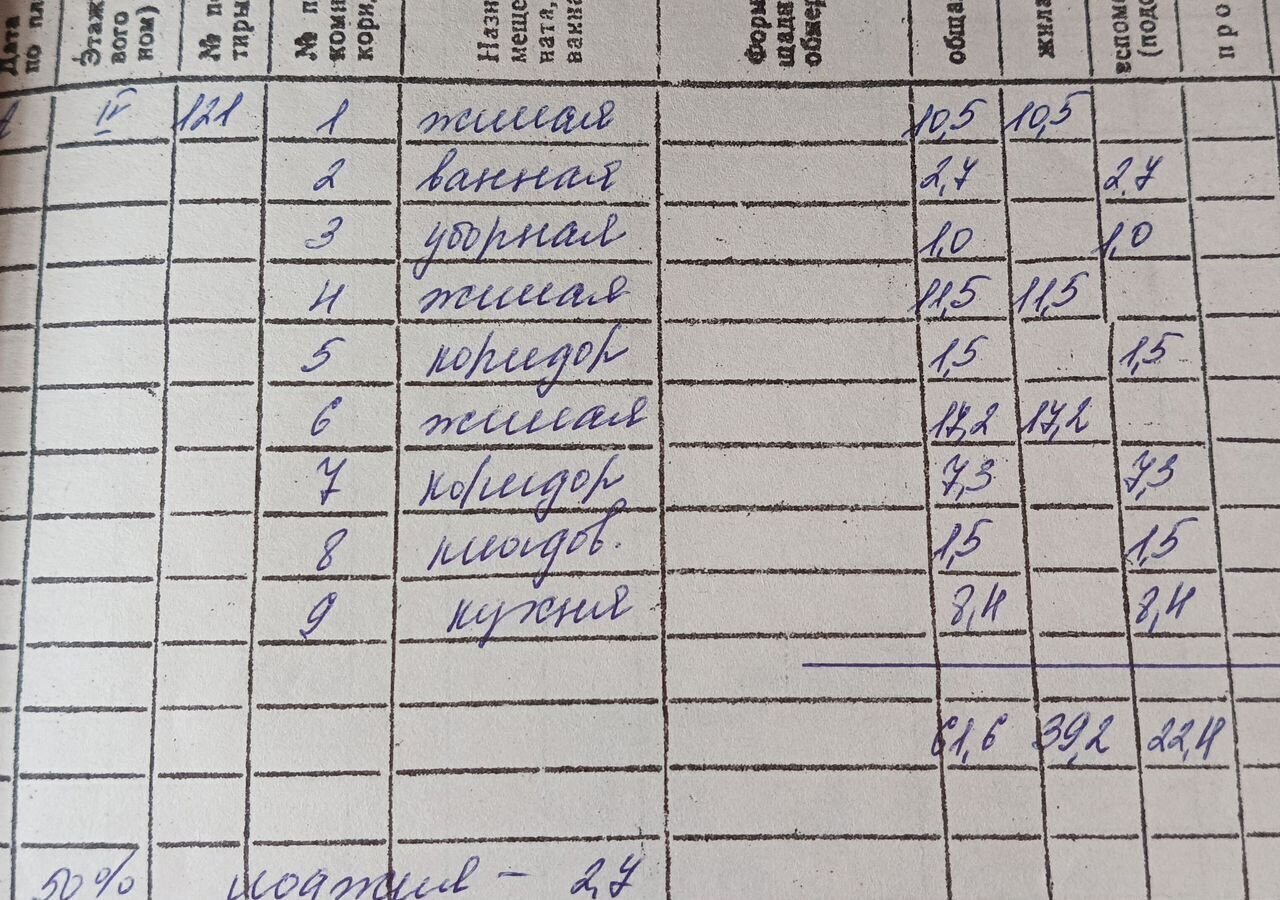 Дата по пл
Этаж вого ном)
№ п тиры
№ п комн кори
Назн меще ната, ванна
Форм щади обмер
обща
жила
вспом (подс
про
IV 121 1 жилая 10,5 10,5
2 ванная 2,7 2,7
3 уборная 1,0 1,0
4 жилая 11,5 11,5
5 коридор 1,5 1,5
6 жилая 17,2 17,2
7 коридор 7,3 7,3
8 кладов. 1,5 1,5
9 кухня 8,4 8,4
61,6 39,2 22,4
50% лоджия - 2,7